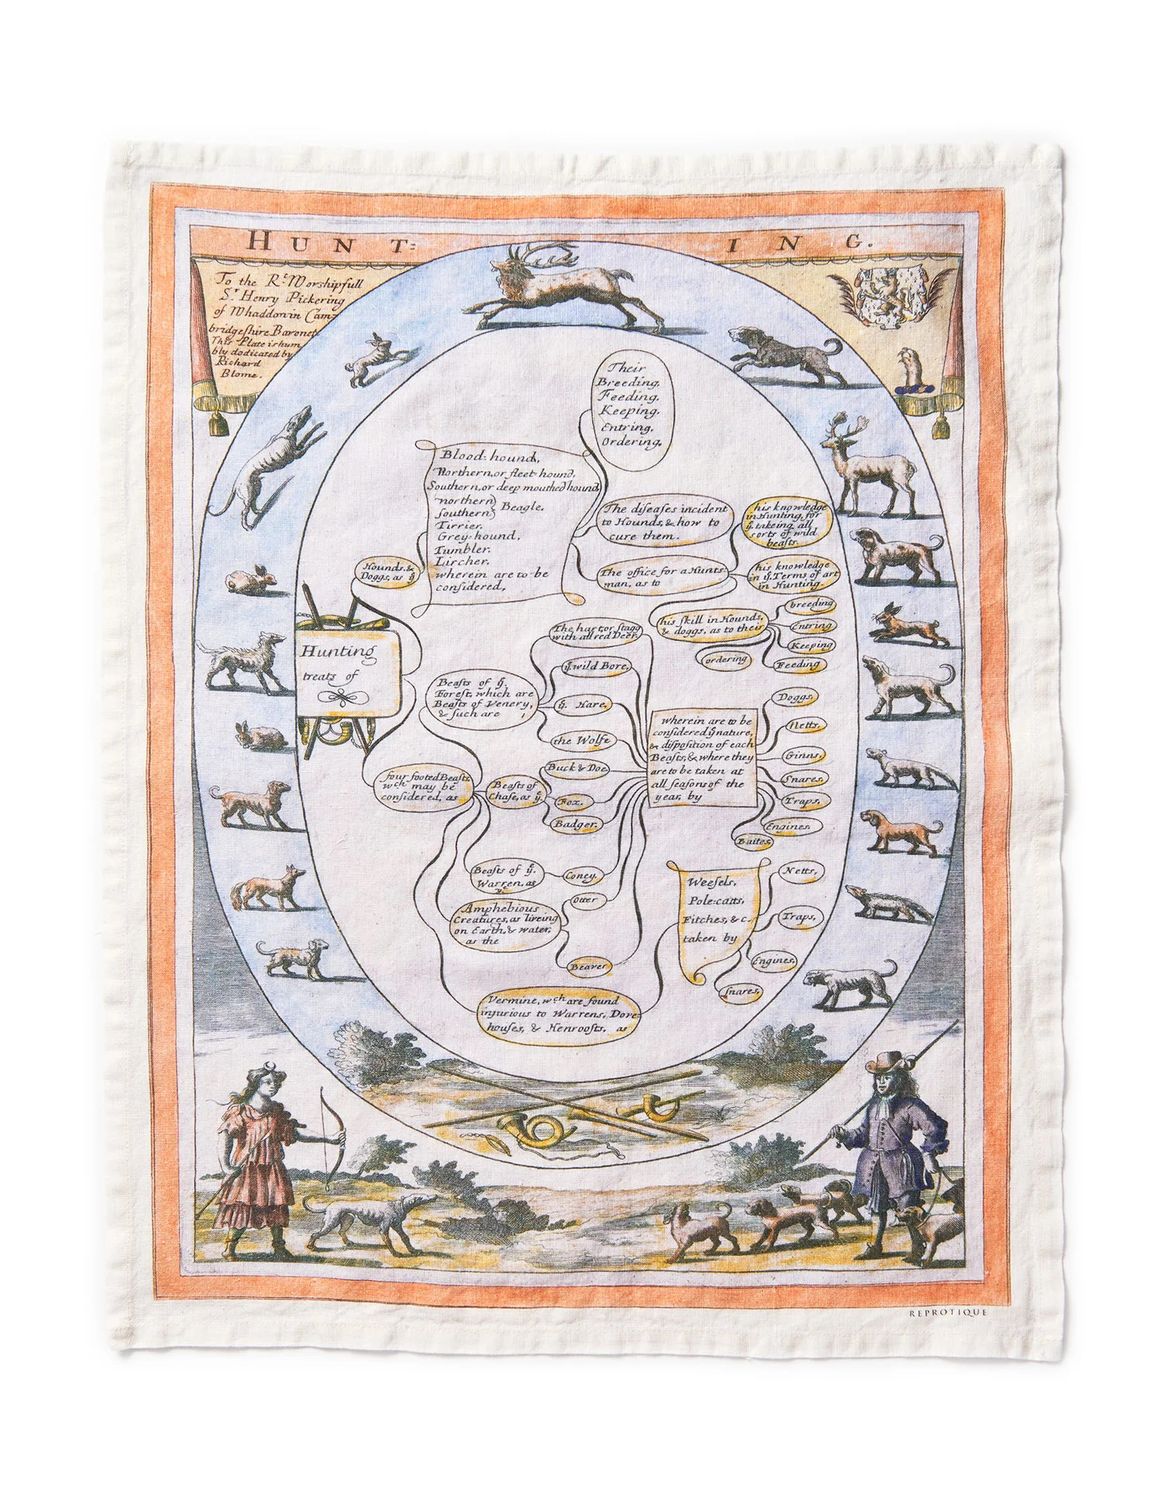 HUNT:ING.
To the Rt. Worshipfull
Sr. Henry Pickering
of Whaddon in Cam=
bridgeshire Baronet
This Plate is hum
bly dedicated by
Richard
Blome.
Their
Breeding,
Feeding,
Keeping,
Entring,
Ordering,
Blood-hound,
Northern, or fleet hound,
Southern, or deep mouthed hound,
northern
southern
Beagle,
Tirrier,
Grey-hound,
Tumbler,
Lircher,
wherein are to be
considered,
The diseases incident
to Hounds, & how to
cure them.
his knowledge
in Hunting, for
ye. takeing all
sorts of wild
beasts.
Hounds, &
Doggs, as ye.
The office for a Hunts-
man, as to
his knowledge
in ye. Terms of art
in Hunting.
his skill in Hounds,
& doggs, as to their
breeding
Entring
Keeping
Feeding
ordering
Hunting
treats of
Beasts of ye.
Forest, which are
Beasts of Venery,
& such are
The hart or stagg
with all red Deer,
ye. wild Bore,
ye. Hare,
the Wolfe
four footed Beasts
wch may be
considered, as
Beasts of
Chase, as ye.
Buck & Doe
Fox.
Badger,
wherein are to be
considered ye nature,
& disposition of each
Beasts, & where they
are to be taken at
all seasons of the
year, by
Doggs,
Netts,
Ginns,
Snares,
Traps,
Engines,
Baites,
Beasts of ye.
Warren, as
Coney,
Amphebious
Creatures, as liveing
on Earth, & water,
as the
Otter
Beaver
Vermine, wch are found
injurious to Warrens, Dove-
houses, & Henroosts, as
Weesels,
Pole-catts,
Fitches, & c.
taken by
Netts,
Traps,
Engines,
snares,
REPROTIQUE